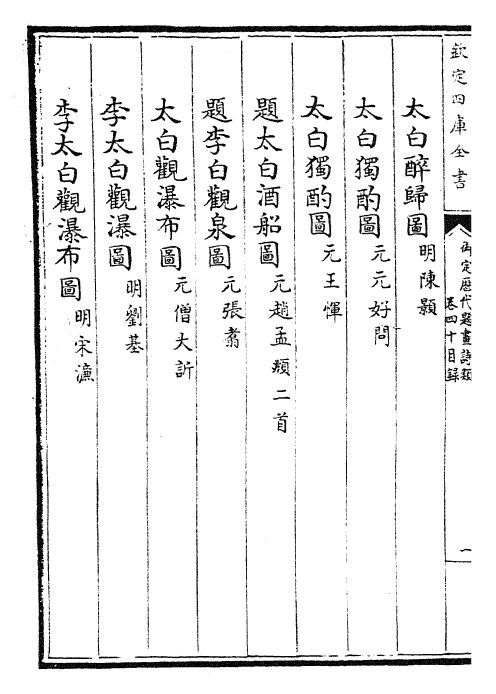 欽定四庫全書
御定歷代題畫詩類
卷四十目錄
一
太白醉歸圖 明陳顥
太白獨酌圖 元元好問
太白獨酌圖 元王惲
題太白酒船圖 元趙孟頫二首
題李白觀泉圖 元張翥
太白觀瀑布圖 元僧大訢
李太白觀瀑圖 明劉基
李太白觀瀑布圖 明宋濂